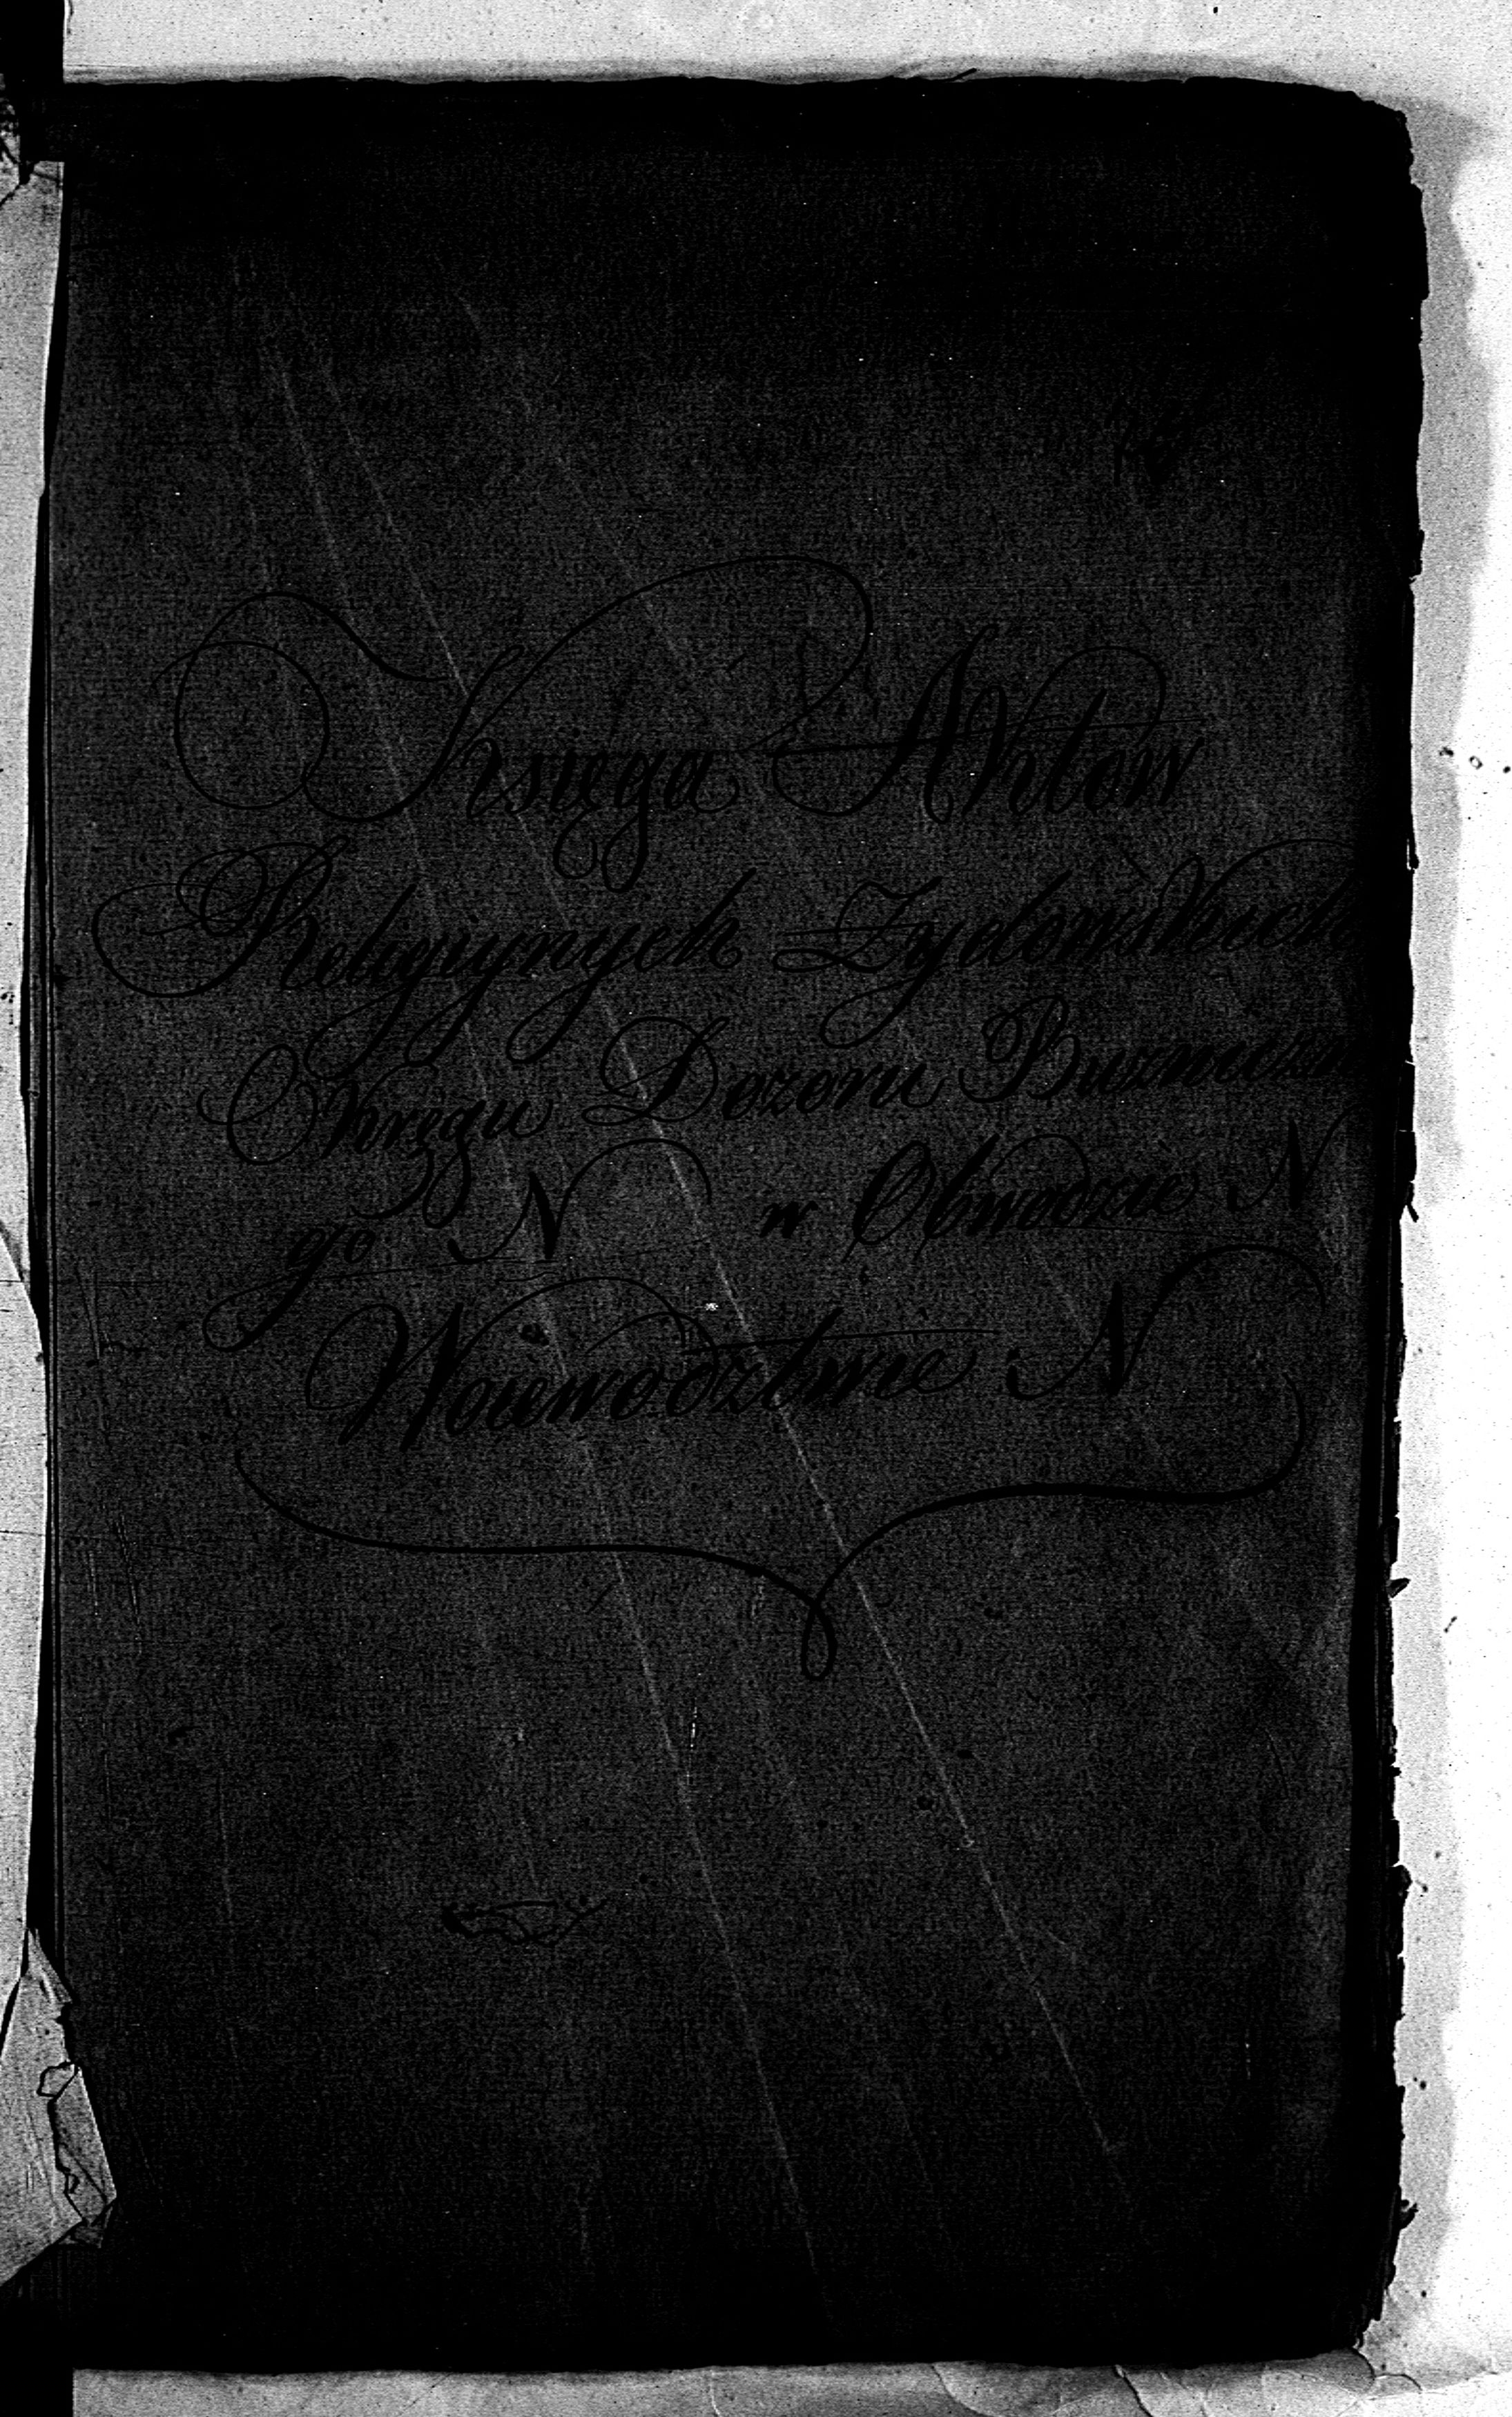 Księga Aktow
Religyinych Zydowskich
Okręgu Dozoru Buznuzn
go N w Obwodzie N
Woiewodztwie N